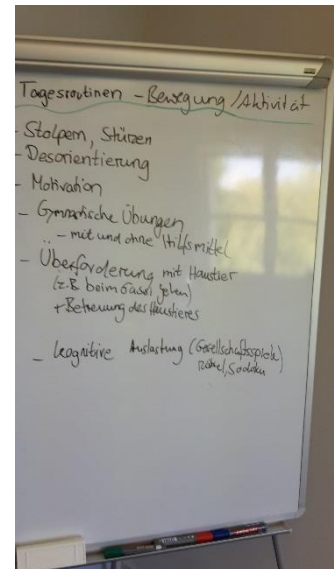 Tagesroutinen - Bewegung/Aktivität
- Stolpern, Stürzen
- Desorientierung
- Motivation
- Gymnastische Übungen
- mit und ohne Hilfsmittel
- Überforderung mit Haustier
(z.B beim Gassi gehen)
+ Betreuung des Haustieres
- kognitive Auslastung (Gesellschaftsspiele)
Rätsel, Sudoku